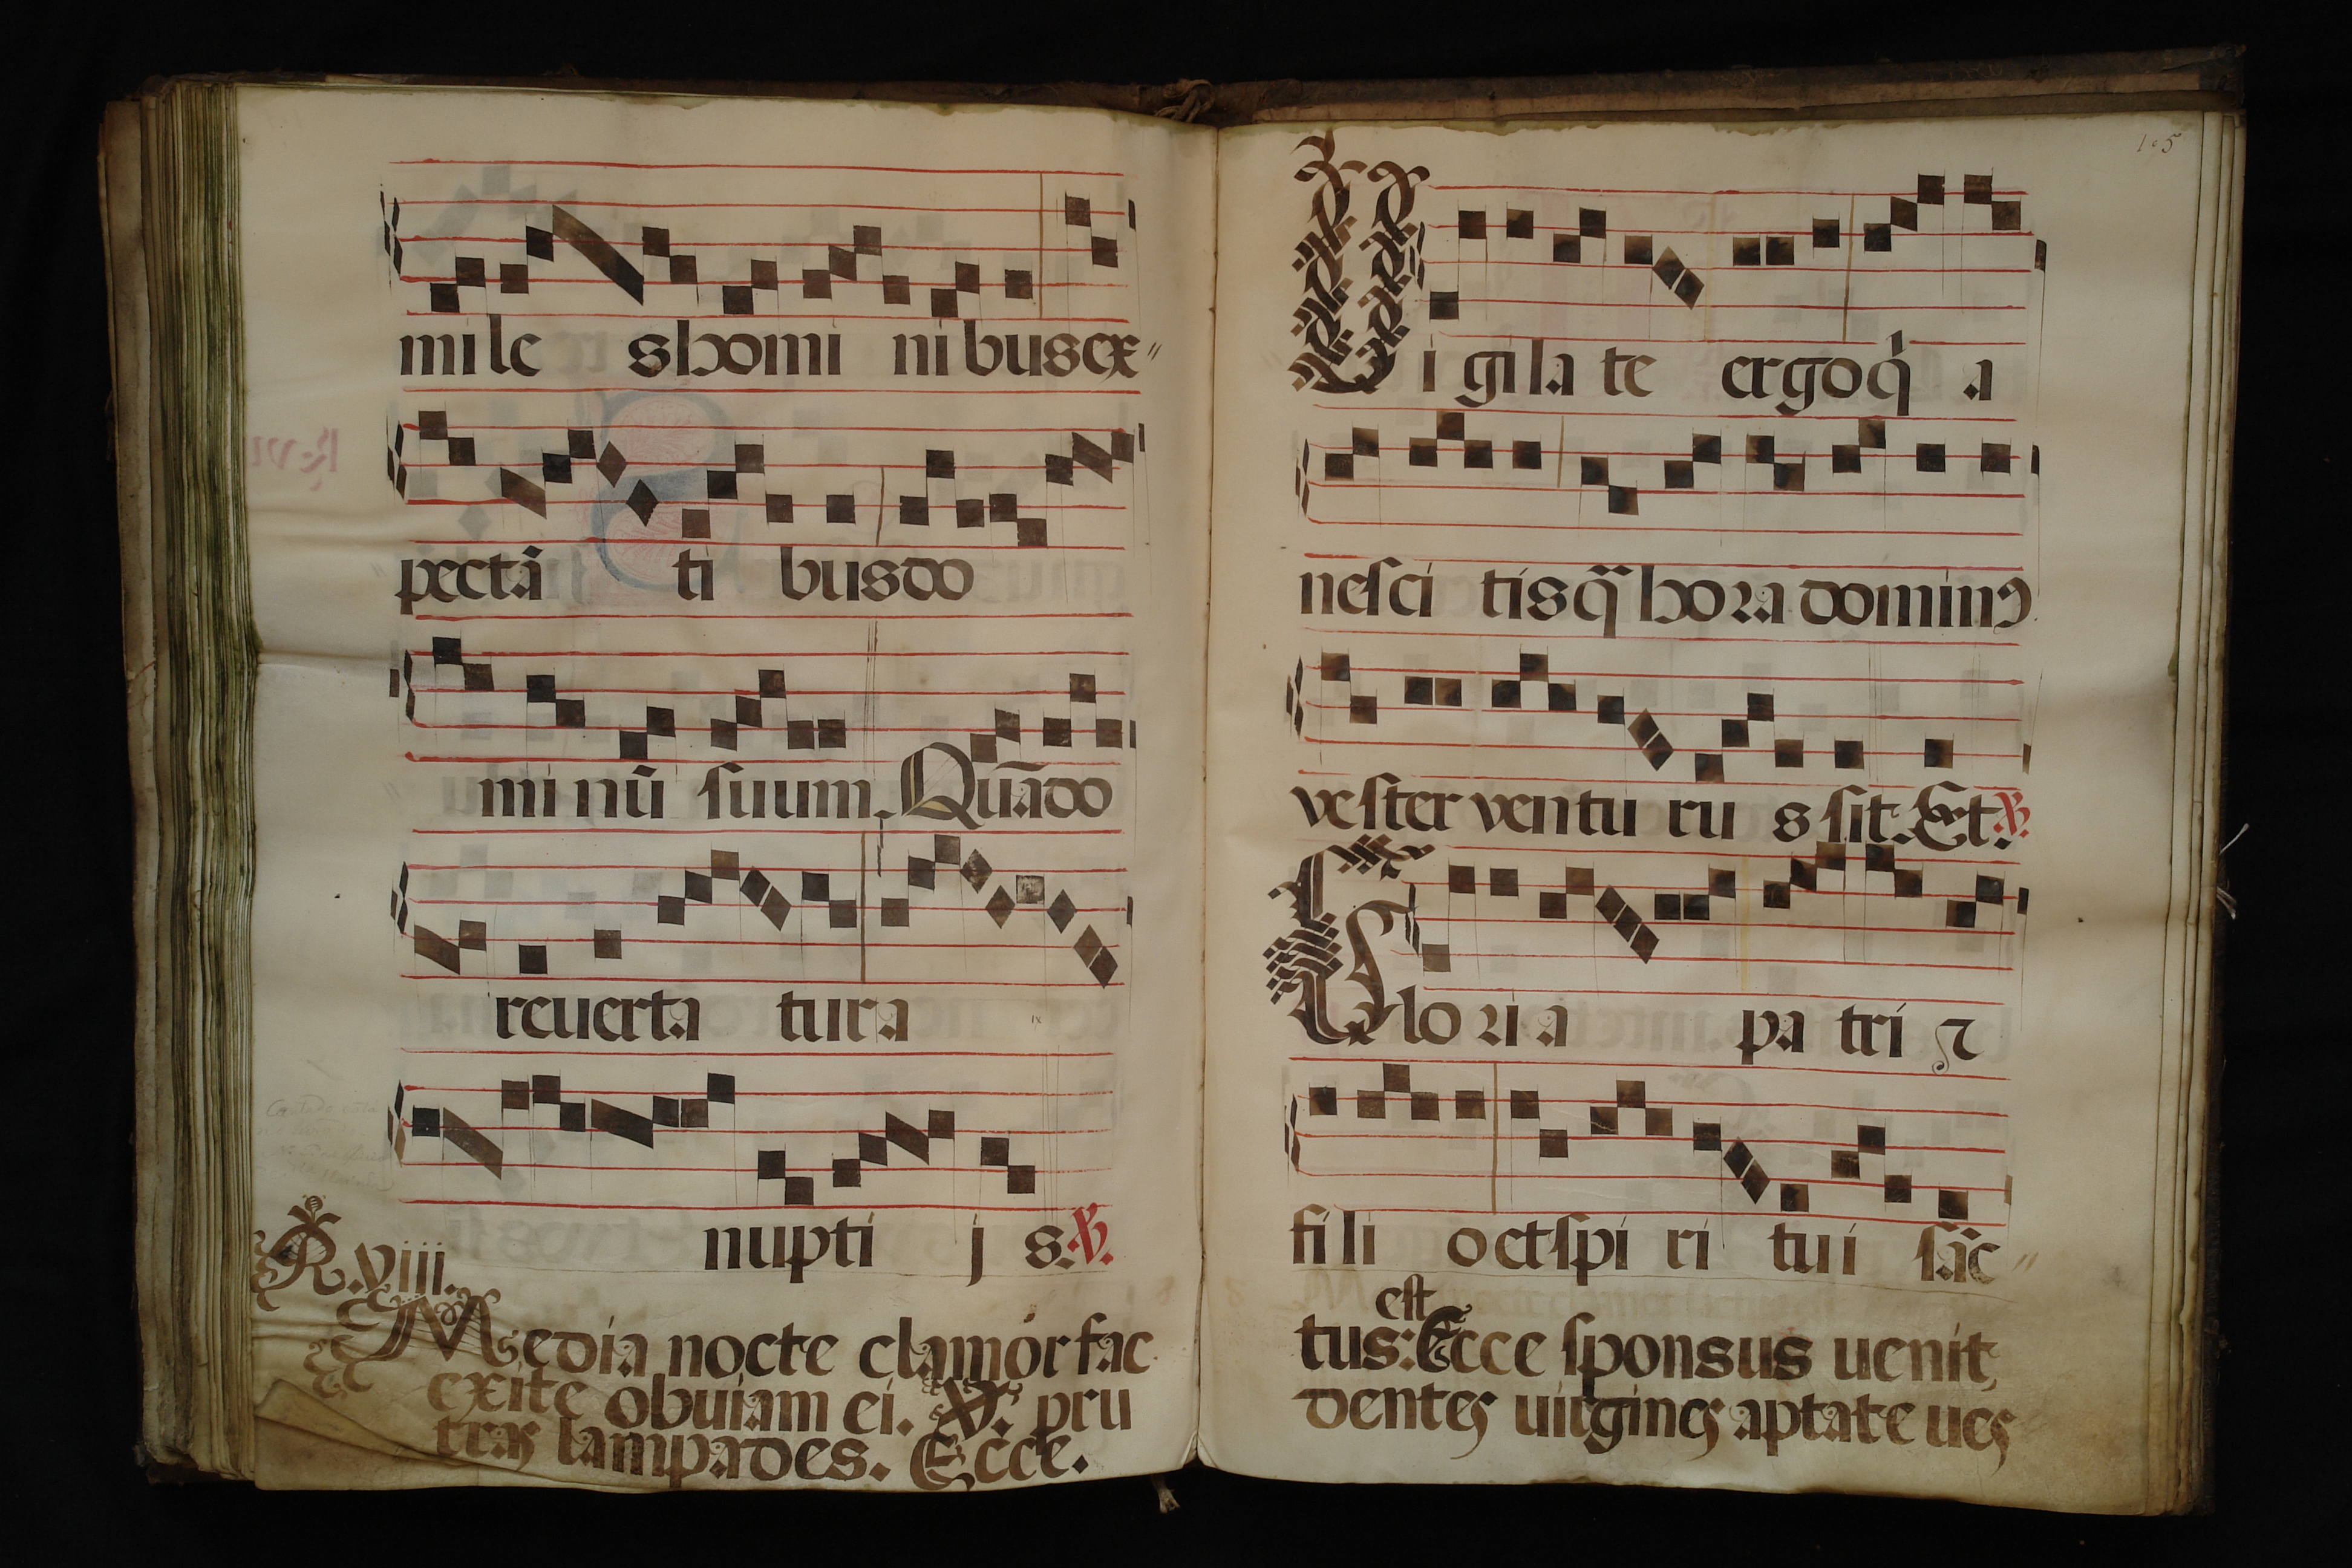 mile shomi nibusex〃
pectā ti busdo
mi nū suum. Quādo
reuerta tura
ix
nupti j s. ℣.
R. viii.
Media nocte clamor fac
exite obuiam ei. ℣. pru
tras lampades. Ecce.
105
Vi gila te ergoq̇ a
nesci tisq̄ hora dominꝰ
vester ventu ru s sit. Et ℣.
Glo ria pa tri ⁊
fi li o etspi ri tui sāc〃
est
tus: Ecce sponsus uenit,
dentes uirgines aptate ues